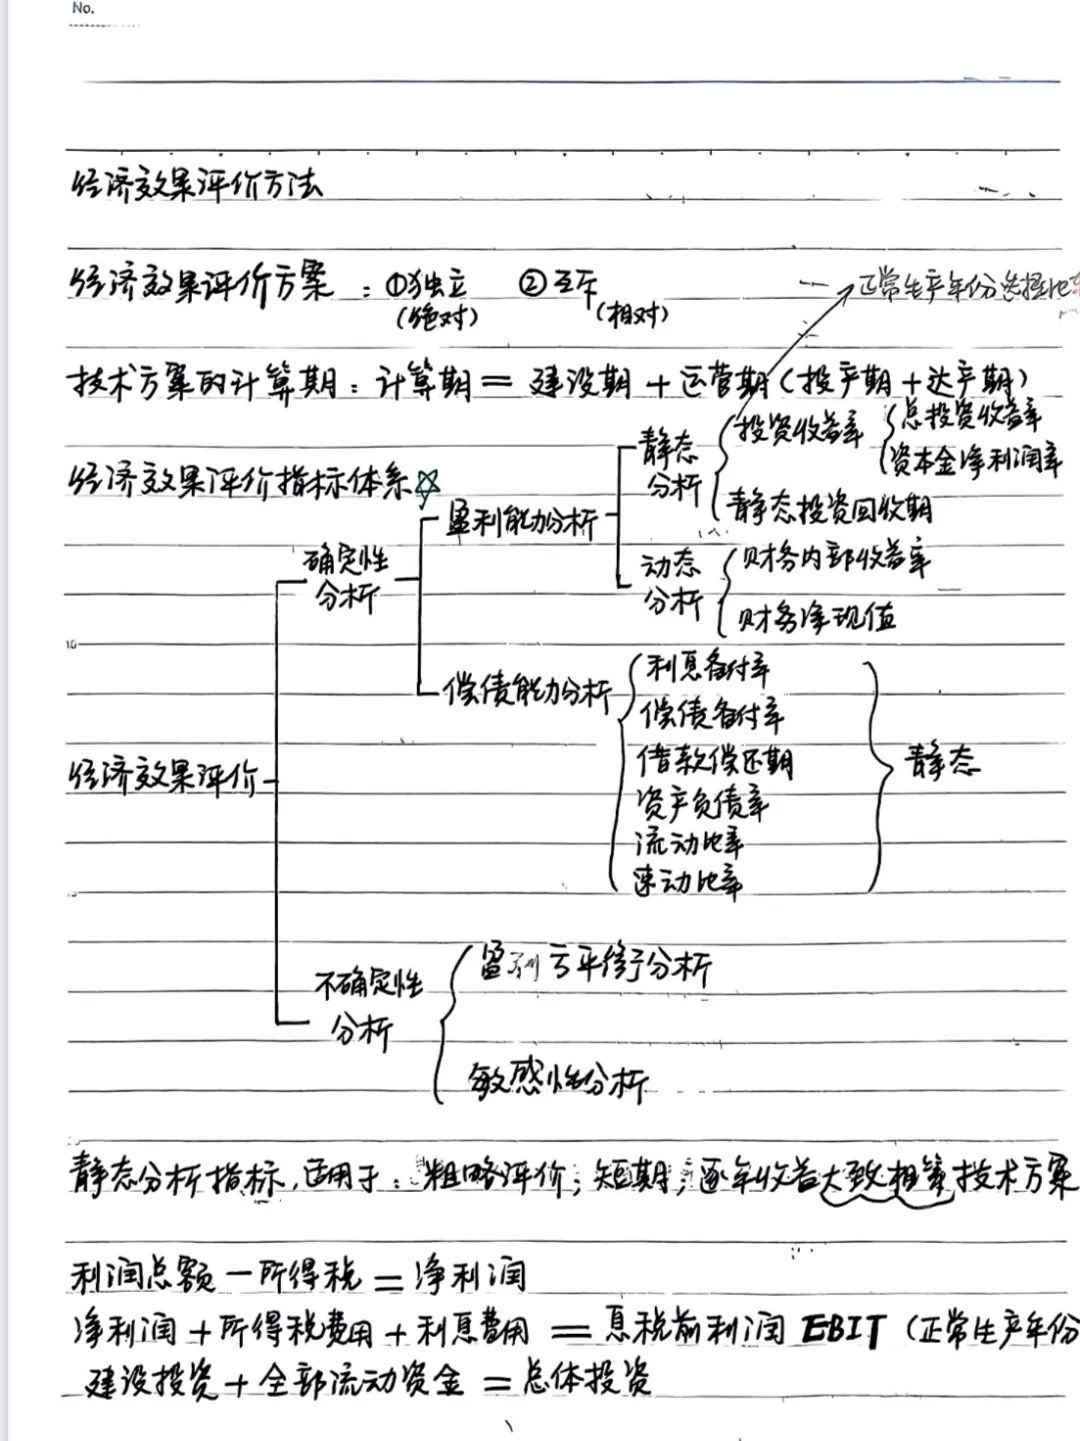 No.
经济效果评价方法
经济效果评价方案：①独立 ②互斥
(绝对) (相对)
正常生产年份
技术方案的计算期：计算期＝建设期＋运营期(投产期＋达产期)
静态分析
投资收益率
总投资收益率
资本金净利润率
静态投资回收期
经济效果评价指标体系☆
盈利能力分析
确定性分析
动态分析
财务内部收益率
财务净现值
10
偿债能力分析
利息备付率
偿债备付率
借款偿还期
资产负债率
流动比率
速动比率
静态
经济效果评价
不确定性分析
盈亏平衡分析
敏感性分析
静态分析指标,适用于：粗略评价；短期；逐年收益大致相等技术方案
利润总额－所得税＝净利润
净利润＋所得税费用＋利息费用＝息税前利润 EBIT (正常生产年份
建设投资＋全部流动资金＝总体投资